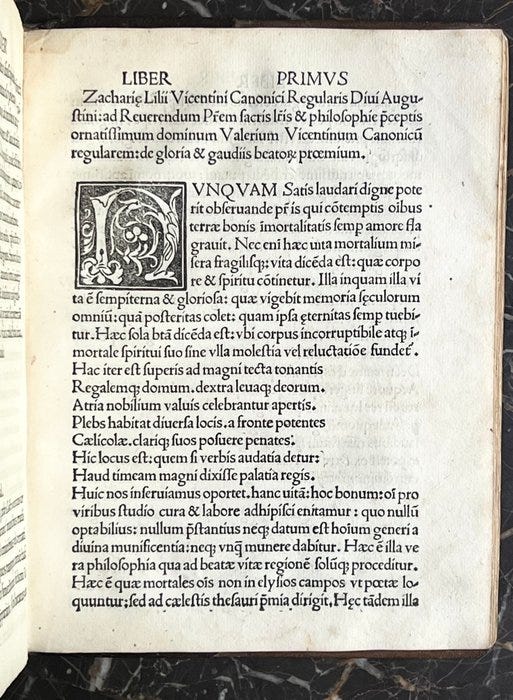 LIBER PRIMVS
Zacharię Lilii Vicentini Canonici Regularis Diui Augu-
stini: ad Reuerendum Pr̃em sacris lr̃is & philosophię p̄ceptis
ornatissimum dominum Valerium Vicentinum Canonicū
regularem: de gloria & gaudiis beatoꝝ proœmium.
NVNQVAM Satis laudari digne pote
rit obseruande pr̃ is qui cōtemptis oībus
terræ bonis īmortalitatis semp amore fla
grauit. Nec enī hæc uita mortalium mi-
sera fragilisq; vita dicēda est: quæ corpo
re & spiritu cōtinetur. Illa inquam illa vi
ta ē sempiterna & gloriosa: quæ vigebit memoria sęculorum
omniū: quā posteritas colet: quam ipsa ęternitas semp tuebi-
tur. Hæc sola btā dicēda est: vbi corpus incorruptibile atq; ī-
mortale spiritui suo sine vlla molestia vel reluctatiōe fundet᷑.
Hac iter est superis ad magni tecta tonantis
Regalemq; domum. dextra leuaq; deorum.
Atria nobilium valuis celebrantur apertis.
Plebs habitat diuersa locis. a fronte potentes
Cælicolæ. clariq; suos posuere penates.
Hic locus est: quem si verbis audatia detur:
Haud timeam magni dixisse palatia regis.
Huic nos inseruiamus oportet. hanc uitā: hoc bonum: oī pro
viribus studio cura & labore adhipisci enitamur: quo nullū
optabilius: nullum p̄stantius neq; datum est hoīum generi a
diuina munificentia: neq; vnq̄ munere dabitur. Hæc ē illa ve
ra philosophia qua ad beatæ vitæ regionē solūq; proceditur.
Hæc ē quæ mortales oīs non in elysios campos vt poetæ lo-
quuntur: sed ad cælestis thesauri p̄mia dirigit. Hęc tādem illa